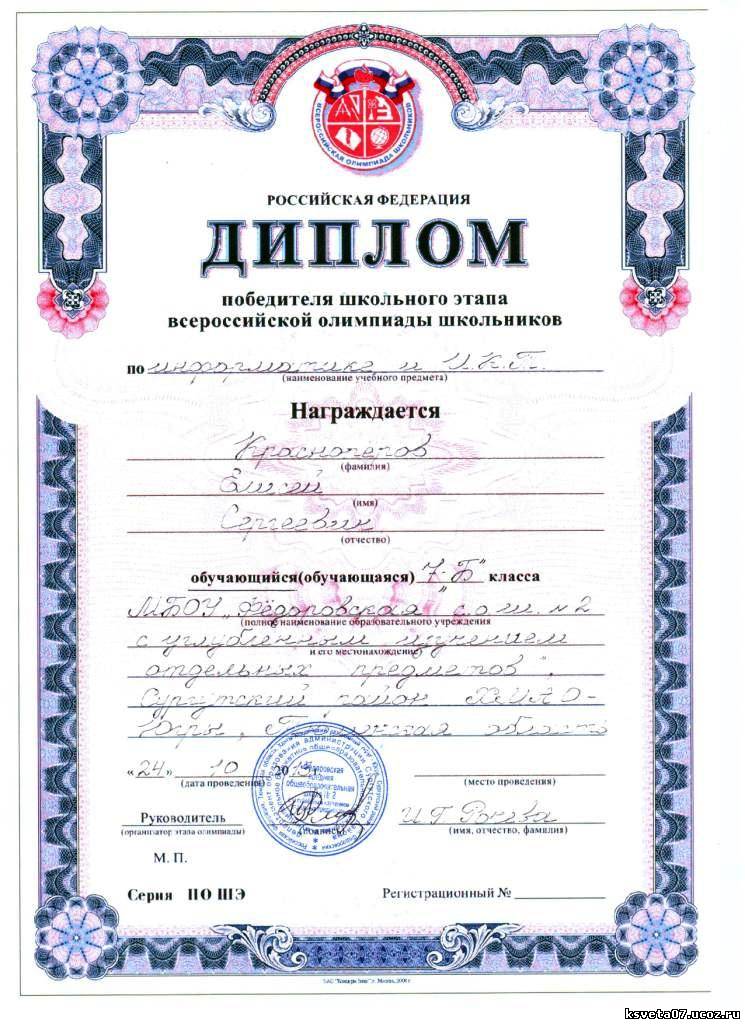 ВСЕРОССИЙСКАЯ ОЛИМПИАДА ШКОЛЬНИКОВ
РОССИЙСКАЯ ФЕДЕРАЦИЯ
ДИПЛОМ
победителя школьного этапа
всероссийской олимпиады школьников
по информатике и И.К.Т.
(наименование учебного предмета)
Награждается
Красноперов
(фамилия)
Елисей
(имя)
Сергеевич
(отчество)
обучающийся(обучающаяся) 7 "Б" класса
МБОУ "Фёдоровская с.о.ш. №2
(полное наименование образовательного учреждения
с углубленным изучением
и его местонахождение)
отдельных предметов",
Сургутский район ХМАО-
Югры, область
«24» 10
(дата проведения) (место проведения)
Руководитель И.Г.
(организатор этапа олимпиады) (подпись) (имя, отчество, фамилия)
М. П.
Серия ПО ШЭ Регистрационный №
ksveta07.ucoz.ru